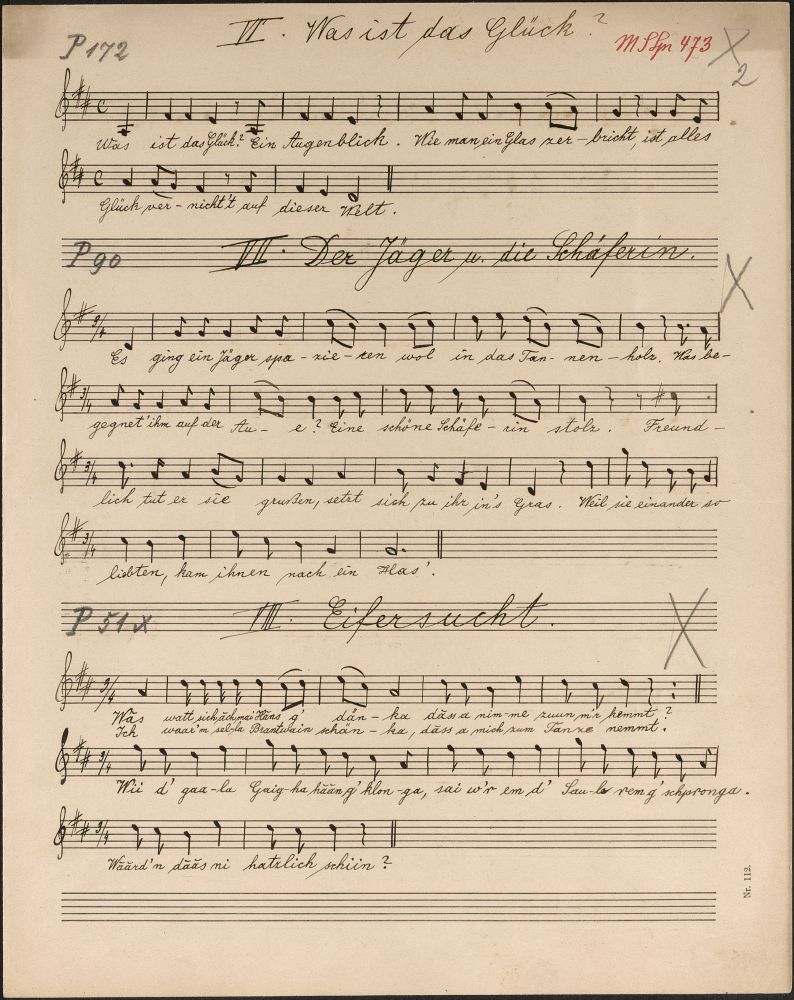 VI. Was ist das Glück?
P 172
MS Lpn 473
X 2
Was ist das Glück? Ein Augenblick. Wie man ein Glas zer-bricht, ist alles
Glück ver-nicht't auf dieser Welt.
P 90 VII. Der Jäger u. die Schäferin.
X
Es ging ein Jäger spa-zie-ren wol in das Tan-nen-holz. Was be-
gegnet' ihm auf der Au-e? Eine schöne Schäfe-rin stolz. Freund-
lich tut er sie grußen, setzt sich zu ihr in's Gras. Weil sie einander so
liebten, kam ihnen noch ein Has'.
P 51 x VIII. Eifersucht.
X
Was watt ich ächma Häns g' dän-ka däss a nim-me zuun m'r kemmt?
Ich waar'm sel-la Brantwain schän-ka, däss a mich zum Tanze nemmt.
Wii d' gaa-la Gaig-ha hään g' klon-ga, sai w'r em d' Sau-le rem g' schpronga.
Wäärd'n dääs ni hatzlich schiin?
Nr. 112.